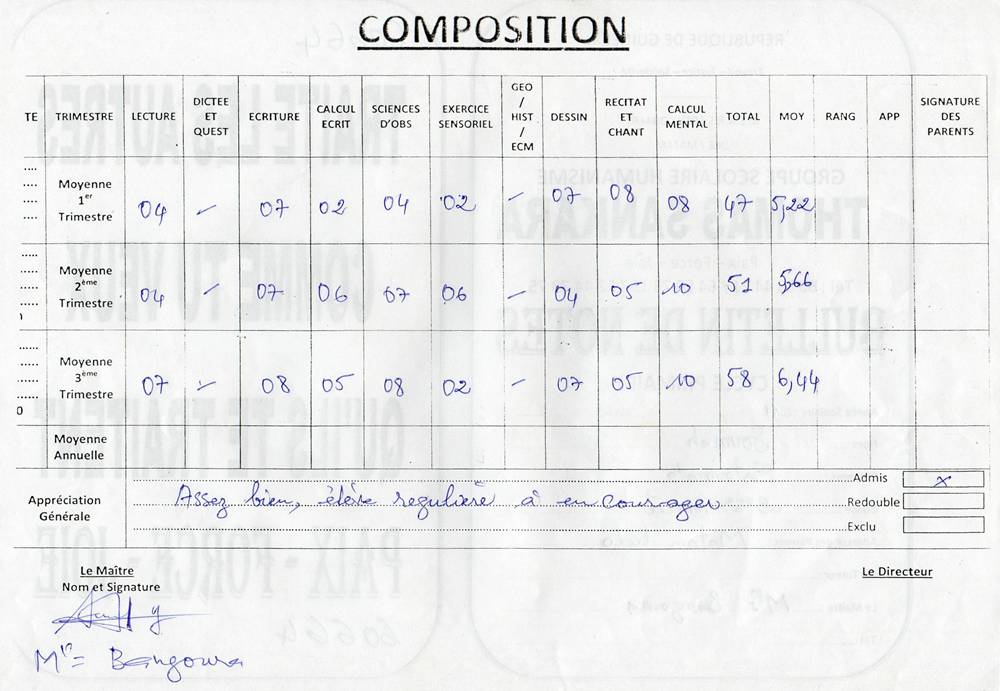 COMPOSITION
TE TRIMESTRE LECTURE DICTEE ET QUEST ECRITURE CALCUL ECRIT SCIENCES D'OBS EXERCICE SENSORIEL GEO / HIST / ECM DESSIN RECITAT ET CHANT CALCUL MENTAL TOTAL MOY RANG APP SIGNATURE DES PARENTS
Moyenne 1er Trimestre 04 - 07 02 04 02 - 07 08 08 47 5,22
Moyenne 2ème Trimestre 04 - 07 06 07 06 - 04 05 10 51 5,66
Moyenne 3ème Trimestre 07 - 08 05 08 02 - 07 05 10 58 6,44
Moyenne Annuelle
Appréciation Générale
Assez bien, élève regulière à encourager
Admis x
Redouble
Exclu
Le Maître
Nom et Signature
Le Directeur
Bangoura